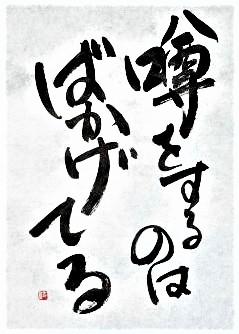 噂をするのは
ばかげてる